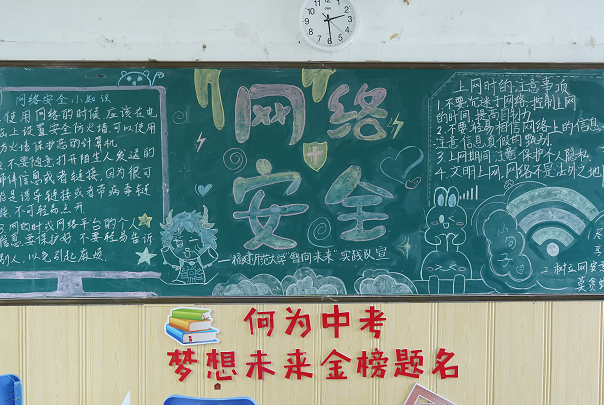 网络安全小知识
使用网络的时候应该在电
上设置安全防火墙,可以使用
火墙保护您的计算机
不要随意打开陌生人发送的
信息或者链接,因为很可
是诱导链接或者带病毒链
接,不可轻易点开
网购时或网络平台的个人
信息要保护好,不要轻易告诉
别人,以免引起麻烦
网络
安全
福建师范大学“智向未来”实践队宣
上网时的注意事项
1.不要沉迷于网络,控制上网
的时间,提高自制力
2.不要轻易相信网络上的信息
注意信息真假的甄别
3.上网期间,注意保护个人隐私
4.文明上网,网络不是法外之地
2.树立网安
何为中考
梦想未来金榜题名